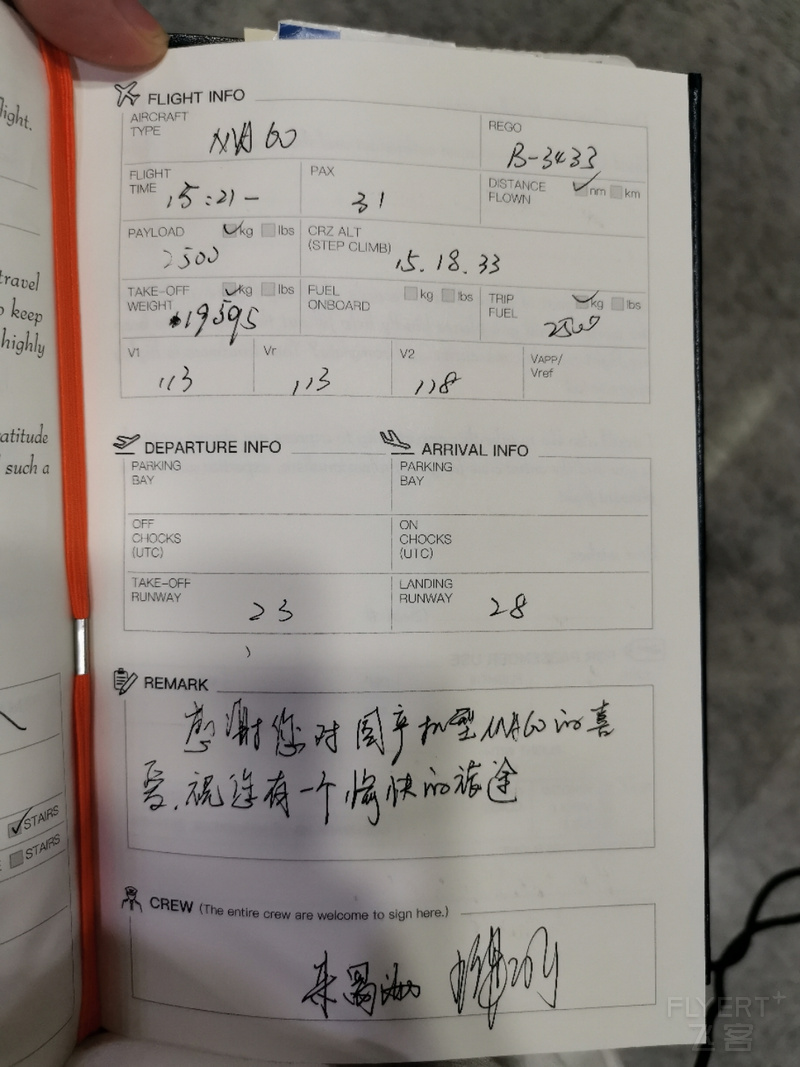 light.
travel
keep
highly
atitude
such a
STAIRS
STAIRS
FLIGHT INFO
AIRCRAFT TYPE MA60
REGO B-3433
FLIGHT TIME 15:21-
PAX 31
DISTANCE FLOWN nm km
PAYLOAD kg lbs 2500
CRZ ALT (STEP CLIMB) 15.18.33
TAKE-OFF WEIGHT kg lbs 19595
FUEL ONBOARD kg lbs
TRIP FUEL kg lbs
V1 113
Vr 113
V2 118
VAPP/ Vref
DEPARTURE INFO
ARRIVAL INFO
PARKING BAY
PARKING BAY
OFF CHOCKS (UTC)
ON CHOCKS (UTC)
TAKE-OFF RUNWAY 23
LANDING RUNWAY 28
REMARK
感谢您对国产机型MA60的喜
爱,祝您有一个愉快的旅途
CREW (The entire crew are welcome to sign here.)
FLYERT+
飞客